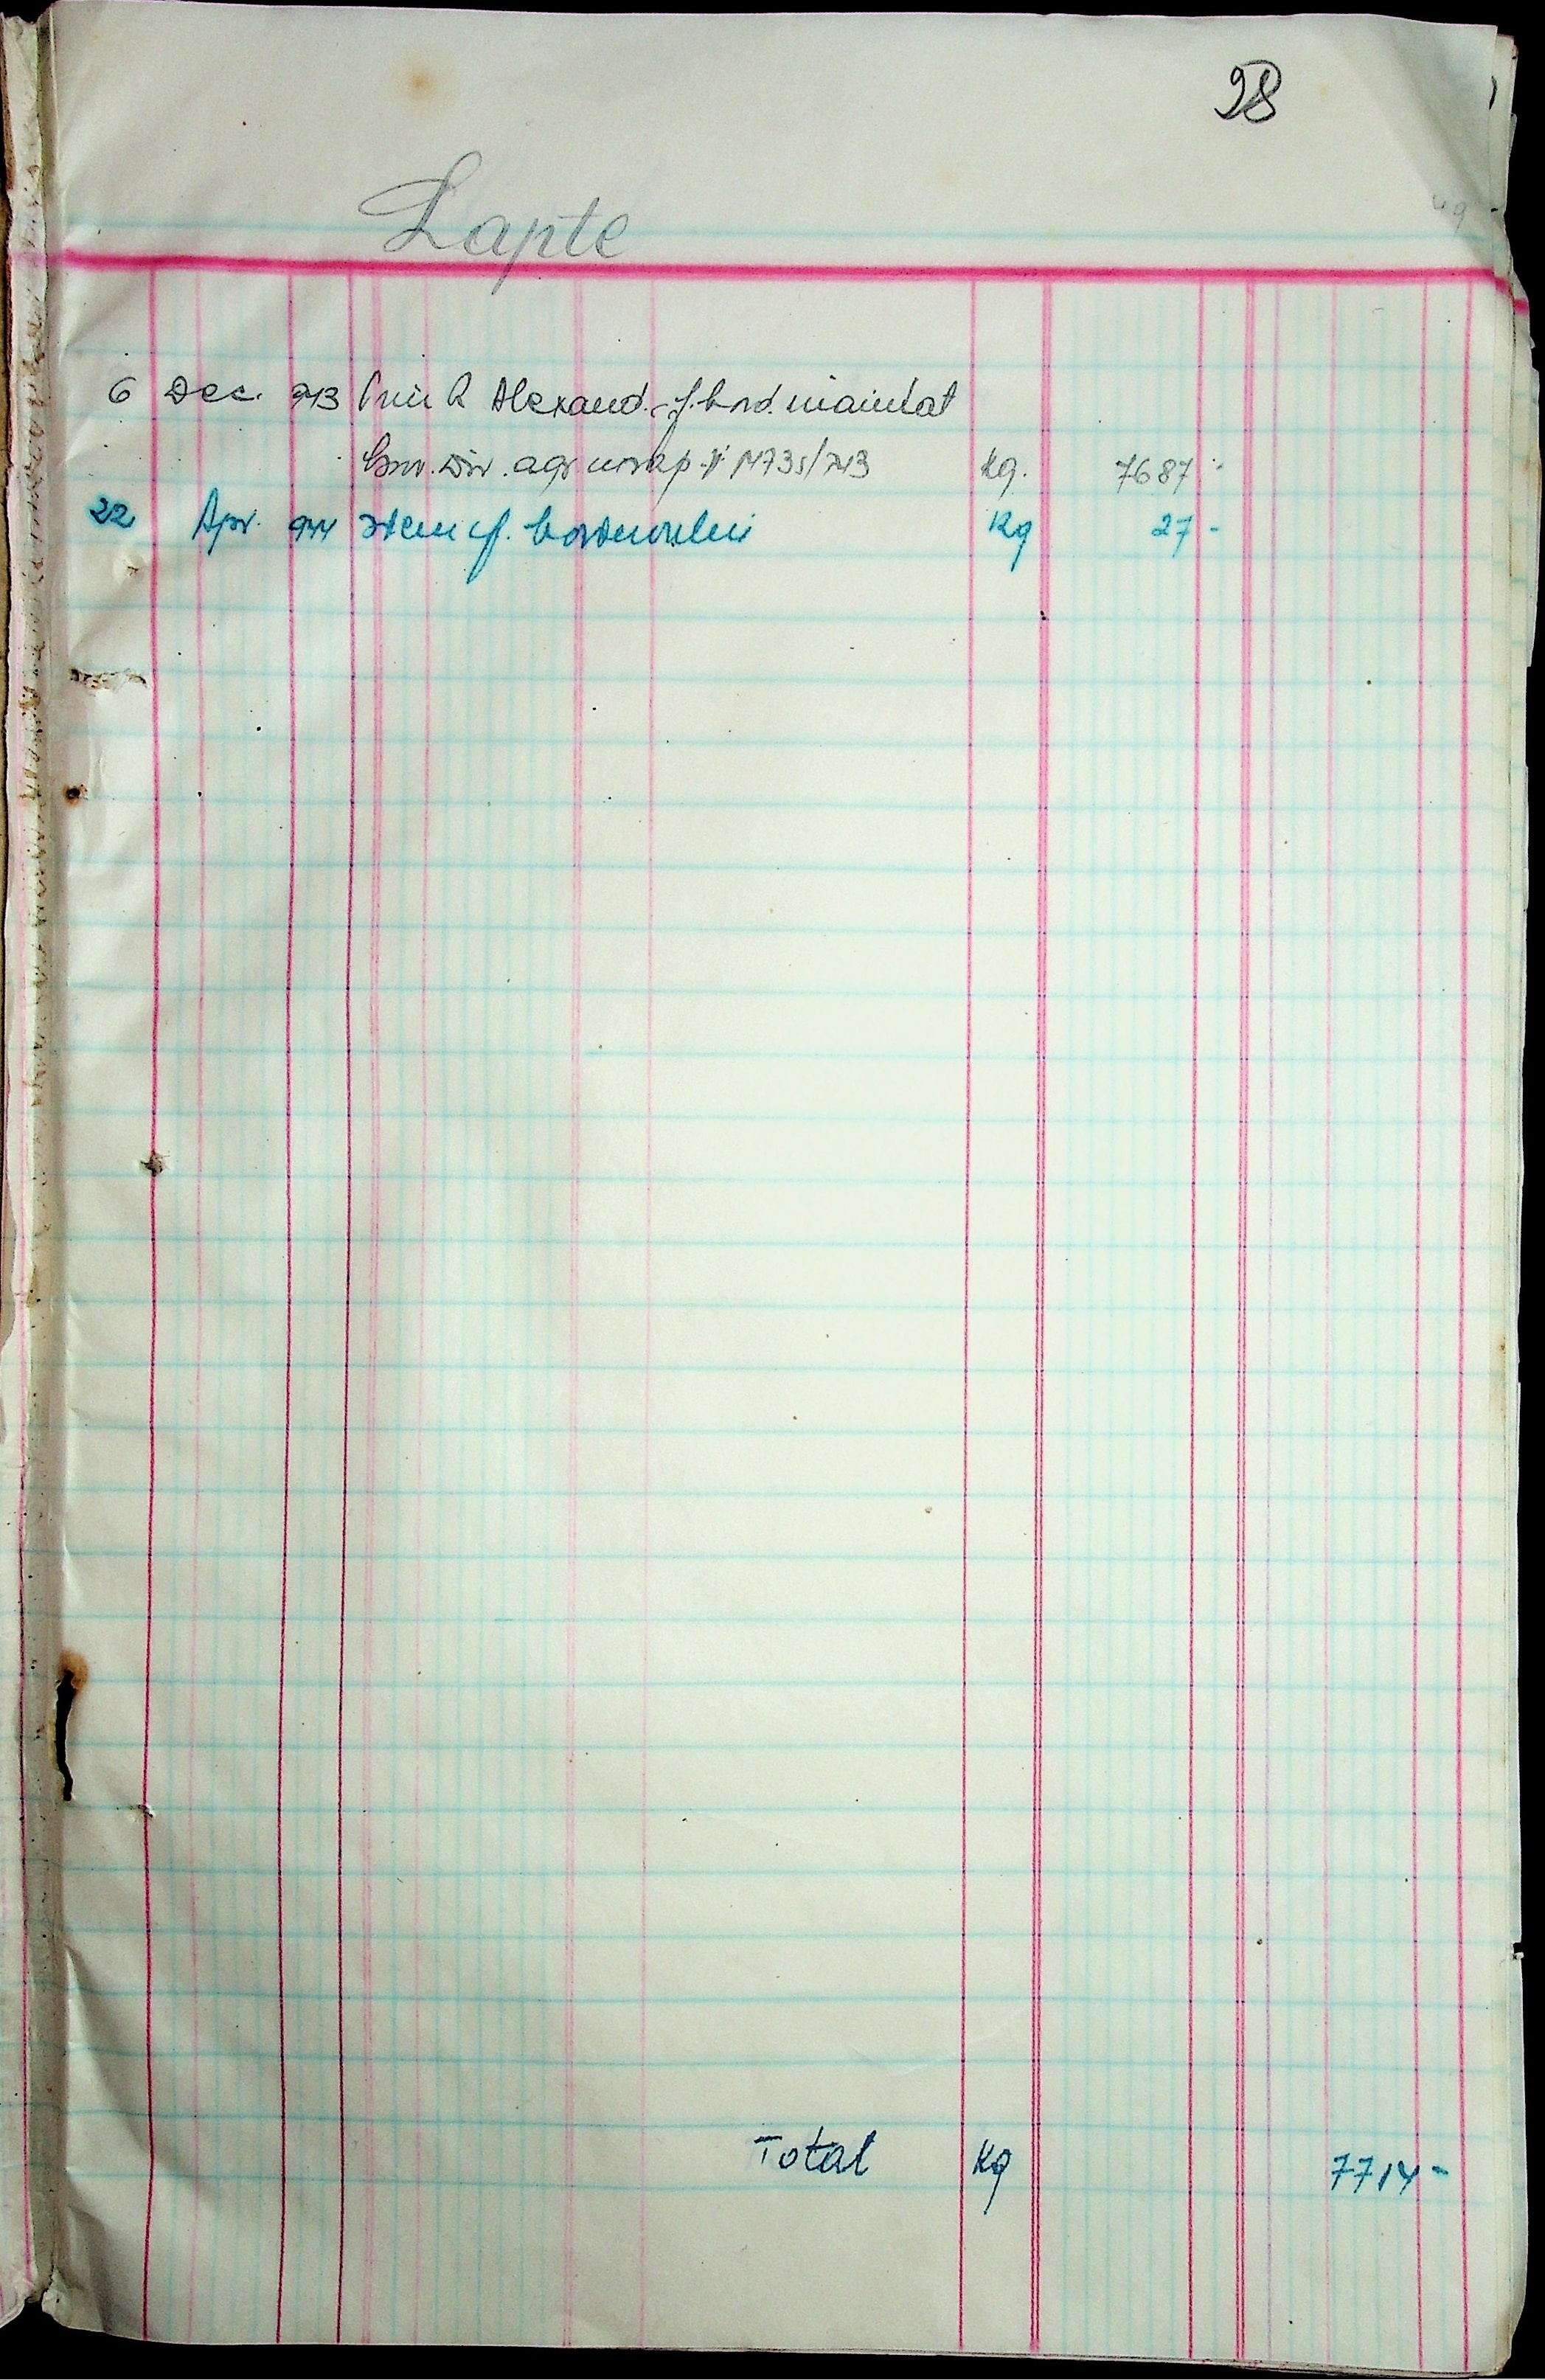 98
Lapte
6 Dec. 943 Prin R Alexand. cf. bord. inaintat
dir. agr. 1473s/943 Kg. 7687 -
22 Apr. 944 Idem cf. borderoului Kg 27 -
Total Kg 7714 -